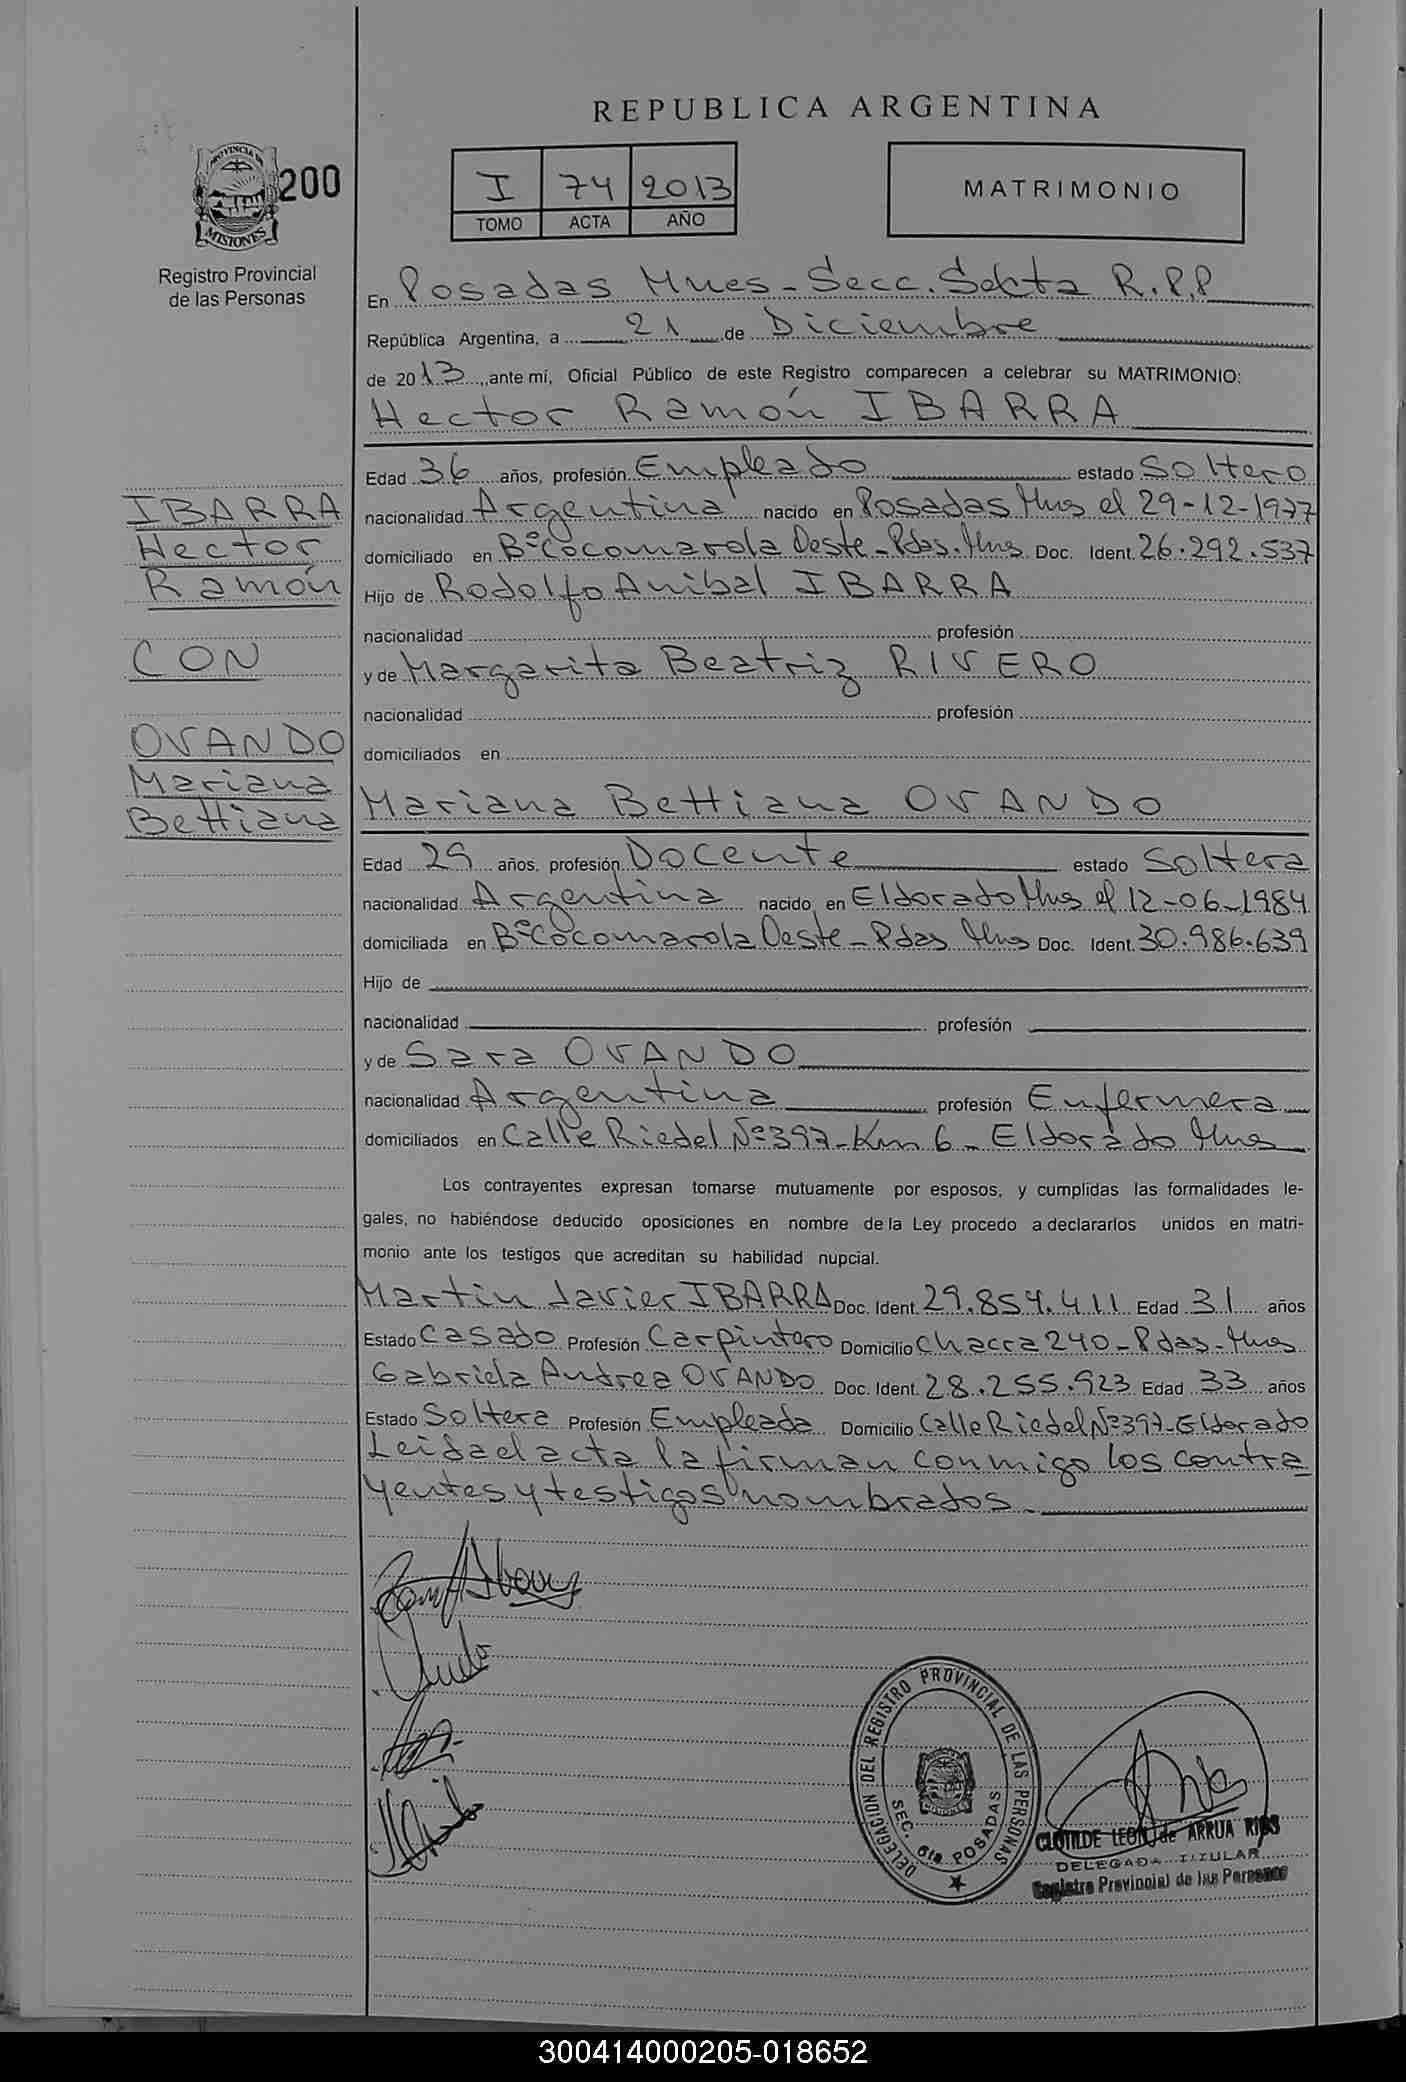 REPUBLICA ARGENTINA
PROVINCIA DE
MISIONES
200
I 74 2013
TOMO ACTA AÑO
MATRIMONIO
Registro Provincial
de las Personas
En Posadas Mnes - Secc. Sexta R.P.P
República Argentina, a 21 de Diciembre
de 2013, ante mí, Oficial Público de este Registro comparecen a celebrar su MATRIMONIO:
Hector Ramón IBARRA
Edad 36 años, profesión Empleado estado Soltero
nacionalidad Argentina nacido en Posadas Mns el 29-12-1977
domiciliado en B° Cocomarola Oeste - Pdas. Mns Doc. Ident. 26.292.537
Hijo de Rodolfo Anibal IBARRA
nacionalidad profesión
y de Margarita Beatriz RIVERO
nacionalidad profesión
domiciliados en
IBARRA
Hector
Ramón
CON
OVANDO
Mariana
Bettiana
Mariana Bettiana OVANDO
Edad 29 años, profesión Docente estado Soltera
nacionalidad Argentina nacido en Eldorado Mns el 12-06-1984
domiciliada en B° Cocomarola Oeste - Pdas Mns Doc. Ident. 30.986.639
Hijo de
nacionalidad profesión
y de Sara OVANDO
nacionalidad Argentina profesión Enfermera
domiciliados en Calle Riedel N° 397 - Km 6 - Eldorado Mns
Los contrayentes expresan tomarse mutuamente por esposos, y cumplidas las formalidades le-
gales, no habiéndose deducido oposiciones en nombre de la Ley procedo a declararlos unidos en matri-
monio ante los testigos que acreditan su habilidad nupcial.
Martin Javier IBARRA Doc. Ident. 29.854.411 Edad 31 años
Estado Casado Profesión Carpintero Domicilio Chacra 240 - Pdas - Mns
Gabriela Andrea OVANDO Doc. Ident. 28.255.923 Edad 33 años
Estado Soltera Profesión Empleada Domicilio Calle Riedel N° 397 - Eldorado
Leida el acta la firman conmigo los contra
yentes y testigos nombrados.
DELEGACION DEL REGISTRO PROVINCIAL DE LAS PERSONAS
SEC. 6ta POSADAS
MISIONES
CLOTILDE LEON de ARRUA RIOS
DELEGADA TITULAR
Registro Provincial de las Personas
300414000205-018652